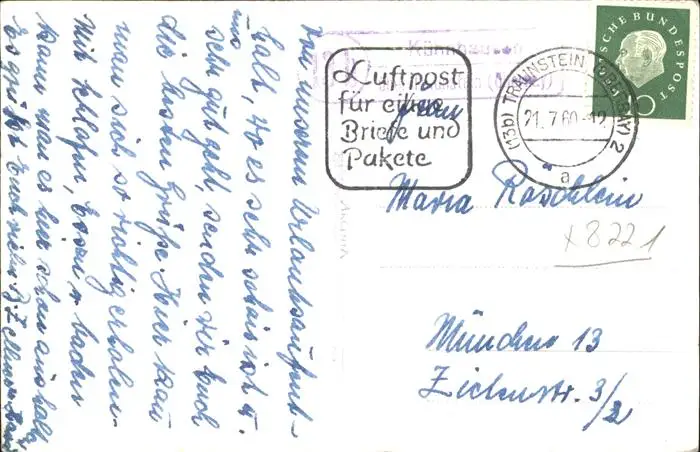 Von unserem Urlaubsaufent-
halt, wo es sehr schön ist u.
uns
sehr gut geht, senden wir Euch
die besten Grüße. Hier kann
man sich so richtig erholen.
Mit schlafen, Essen u. baden
kann man es hier schon aushalten
Es grüßt Euch
Luftpost
für eilige
Briefe und
Pakete
(13b) TRAUNSTEIN (OBERBAY) 2
21.7.60-12
a
DEUTSCHE BUNDESPOST
Frau
Maria
x 8221
München 13
3/2